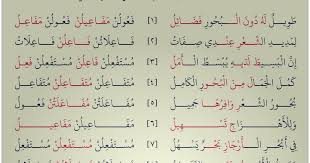 طَوِيلٌ لَهُ دُونَ الْبُحُورِ فَضَائلُ [1] فَعُولُنْ مَفَاعِيلُنْ فَعُولُنْ مَفَاعِلُ
لِمَدِيدِ الشِّعْرِ عِنْدِي صِفَاتُ [2] فَاعِلَاتُنْ فَاعِلُنْ فَاعِلَاتُ
إِنَّ الْبَسِيطَ لَدَيْهِ يُبْسَطُ الْأَمَلُ [3] مُسْتَفْعِلُنْ فَاعِلُنْ مُسْتَفْعِلُنْ فَعِلُ
كَمُلَ الْجَمَالُ مِنَ الْبُحُورِ الْكَامِلُ [4] مُتَفَاعِلُنْ مُتَفَاعِلُنْ مُتَفَاعِلُ
بُحُورُ الشِّعْرِ وَافِرُهَا جَمِيلُ [5] مُفَاعَلَتُنْ مُفَاعَلَتُنْ فَعُولُ
وَلِلْأَهْزَاجِ تَسْهِيلُ [6] مَفَاعِيلُنْ مَفَاعِيلُ
فِي أَبْحُرِ الْأَرْجَازِ بَحْرٌ يَسْهُلُ [7] مُسْتَفْعِلُنْ مُسْتَفْعِلُنْ مُسْتَفْعِلُ